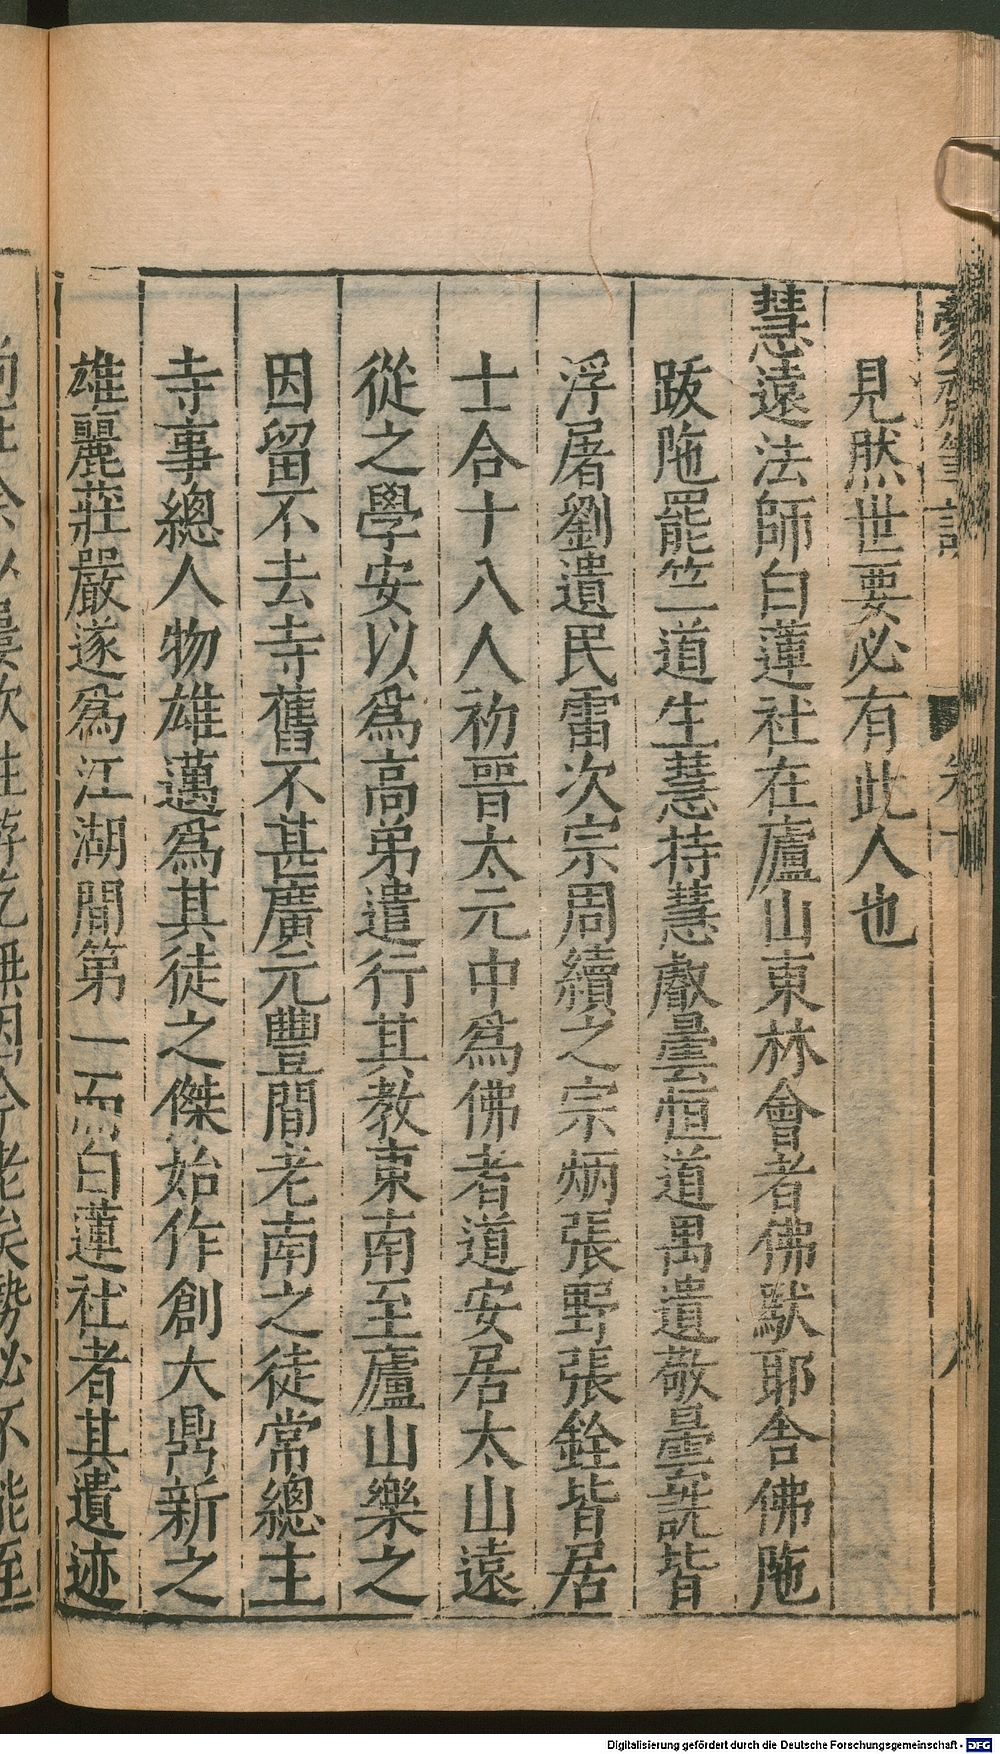 見然世要必有此人也
慧遠法師白蓮社在廬山東林會者佛䭾耶舍佛陁
跋陁羅竺道生慧持慧叡曇恒道昺道敬曇詵皆
浮屠劉遺民雷次宗周續之宗炳張野張銓皆居
士合十八人初晉太元中爲佛者道安居太山遠
從之學安以爲高弟遣行其教東南至廬山樂之
因留不去寺舊不甚廣元豐間老南之徒常總主
寺事總人物雄邁爲其徒之傑始作創大鼎新之
雄麗莊嚴遂爲江湖間第一而白蓮社者其遺迹
Digitalisierung gefördert durch die Deutsche Forschungsgemeinschaft - DFG